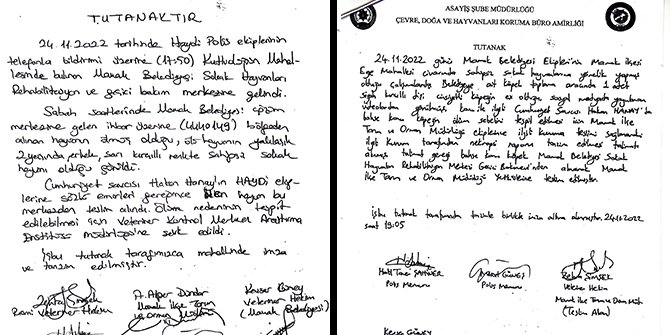 TUTANAKTIR
24.11.2022 tarihinde Haydi Polis ekiplerinin
telefonla bildirimi üzerine (17:50) Kutludüğün Mahal-
lesinde bulunan Mamak Belediyesi Sokak Hayvanları
Rehabilitasyon ve geçici bakım merkezine gelindi.
Sabah saatlerinde Mamak Belediyesi çözüm
merkezine gelen ihbar üzerine (4440149) bölgeden
alınan hayvanın ölmüş olduğu, ölü hayvanın yaklaşık
2 yaşında, erkek, sarı kırçıllı renkte sahipsiz sokak
hayvanı olduğu görüldü.
Cumhuriyet savcısı Hakan Hanay'ın HAYDİ ekip-
lerine sözlü emirleri gereğince ölen hayvan bu
merkezden teslim alındı. Ölüm nedeninin tespit
edilebilmesi için Veteriner Kontrol Merkez Araştırma
Enstitüsü müdürlüğüne sevk edildi.
İşbu tutanak tarafımızca mahallinde imza
ve tanzim edilmiştir.
Zehra Şimşek
Veteriner Hekim
A. Alper Dündar
Mamak İlçe Tarım
ve orman
Kevser Güney
Veteriner Hekim
(Mamak Belediyesi)
ASAYİŞ ŞUBE MÜDÜRLÜĞÜ
ÇEVRE, DOĞA VE HAYVANLARI KORUMA BÜRO AMİRLİĞİ
TUTANAK
24.11.2022 günü Mamak Belediyesi Ekiplerinin Mamak ilçesi
Ege Mahallesi civarında sahipsiz sokak hayvanlarına yönelik yapmış
olduğu çalışmalarda Belediyeye ait köpek toplama aracında 1 adet
kırçıllı dişi cinsiyetli köpeğin ex olduğu sosyal medyada yayınlanan
Cumhuriyet Savcısı Hakan HANAY'ın
bahse konu köpeğin ölüm sebebini tespit edilmesi için Mamak ilçe
Tarım ve Orman Müdürlüğü ekiplerine ilgili kuruma teslimi sağlanmadı
ilgili kurum tarafından nekropsi raporu tanzim edilmesi talimatı
alınmış talimat gereği bahse konu köpek Mamak Belediyesi Sokak
Hayvanları Rehabilitasyon Merkezi Geçici Bakımevi'nden alınarak Mamak
İlçe Tarım ve Orman Müdürlüğü Yetkililerine teslim edilmiştir.
İşbu tutanak tarafımızdan tanzimle birlikte imza altına alınmıştır. 24.11.2022
saat 19:05
Polis Memuru
GÜNEŞ
Polis Memuru
Zehra ŞİMŞEK
Veteriner Hekim
Mamak İlçe Tarım ve Orman Müd.
(Teslim Alan)
Kevser Güney